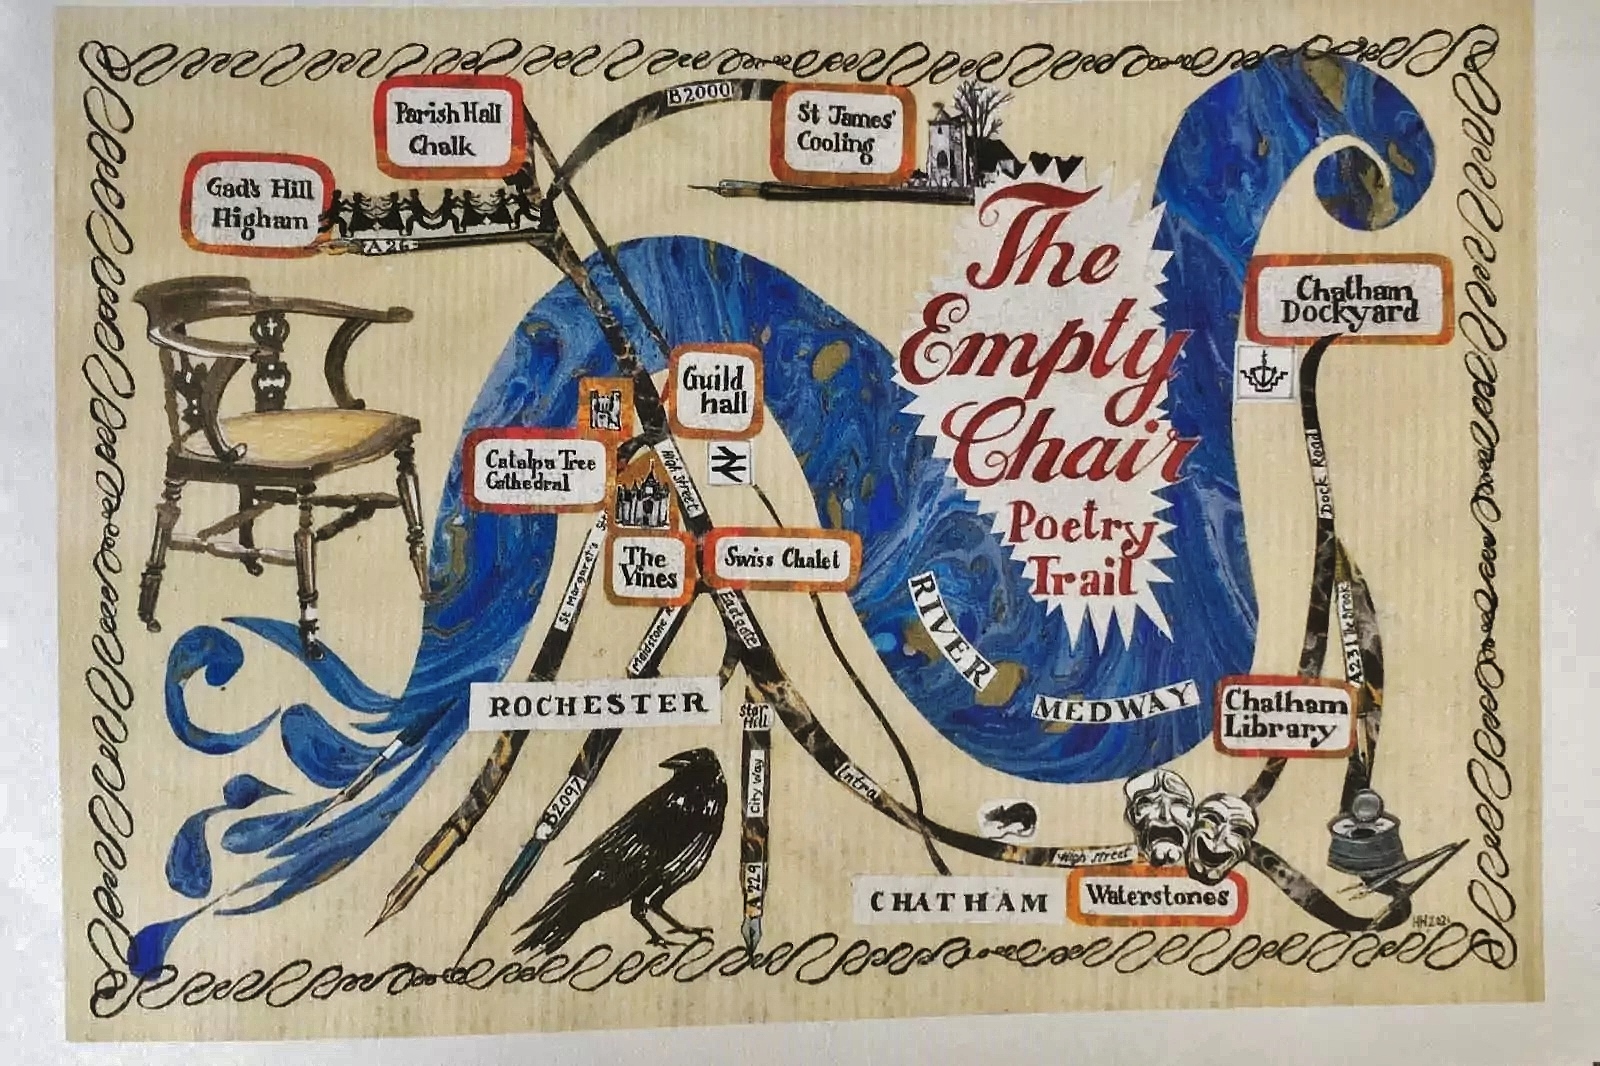 B2000
Parish Hall
Chalk
St James'
Cooling
Gad's Hill
Higham
A26
The
Empty
Chair
Poetry
Trail
Chatham
Dockyard
Guild
hall
Catalpa Tree
Cathedral
High Street
Dock Road
The
Vines
Swiss Chalet
St Margaret's St
Maidstone R
Eastgate
RIVER
MEDWAY
ROCHESTER
Star
Hill
Chatham
Library
City Way
B2097
Intra
High Street
A229
CHATHAM
Waterstones